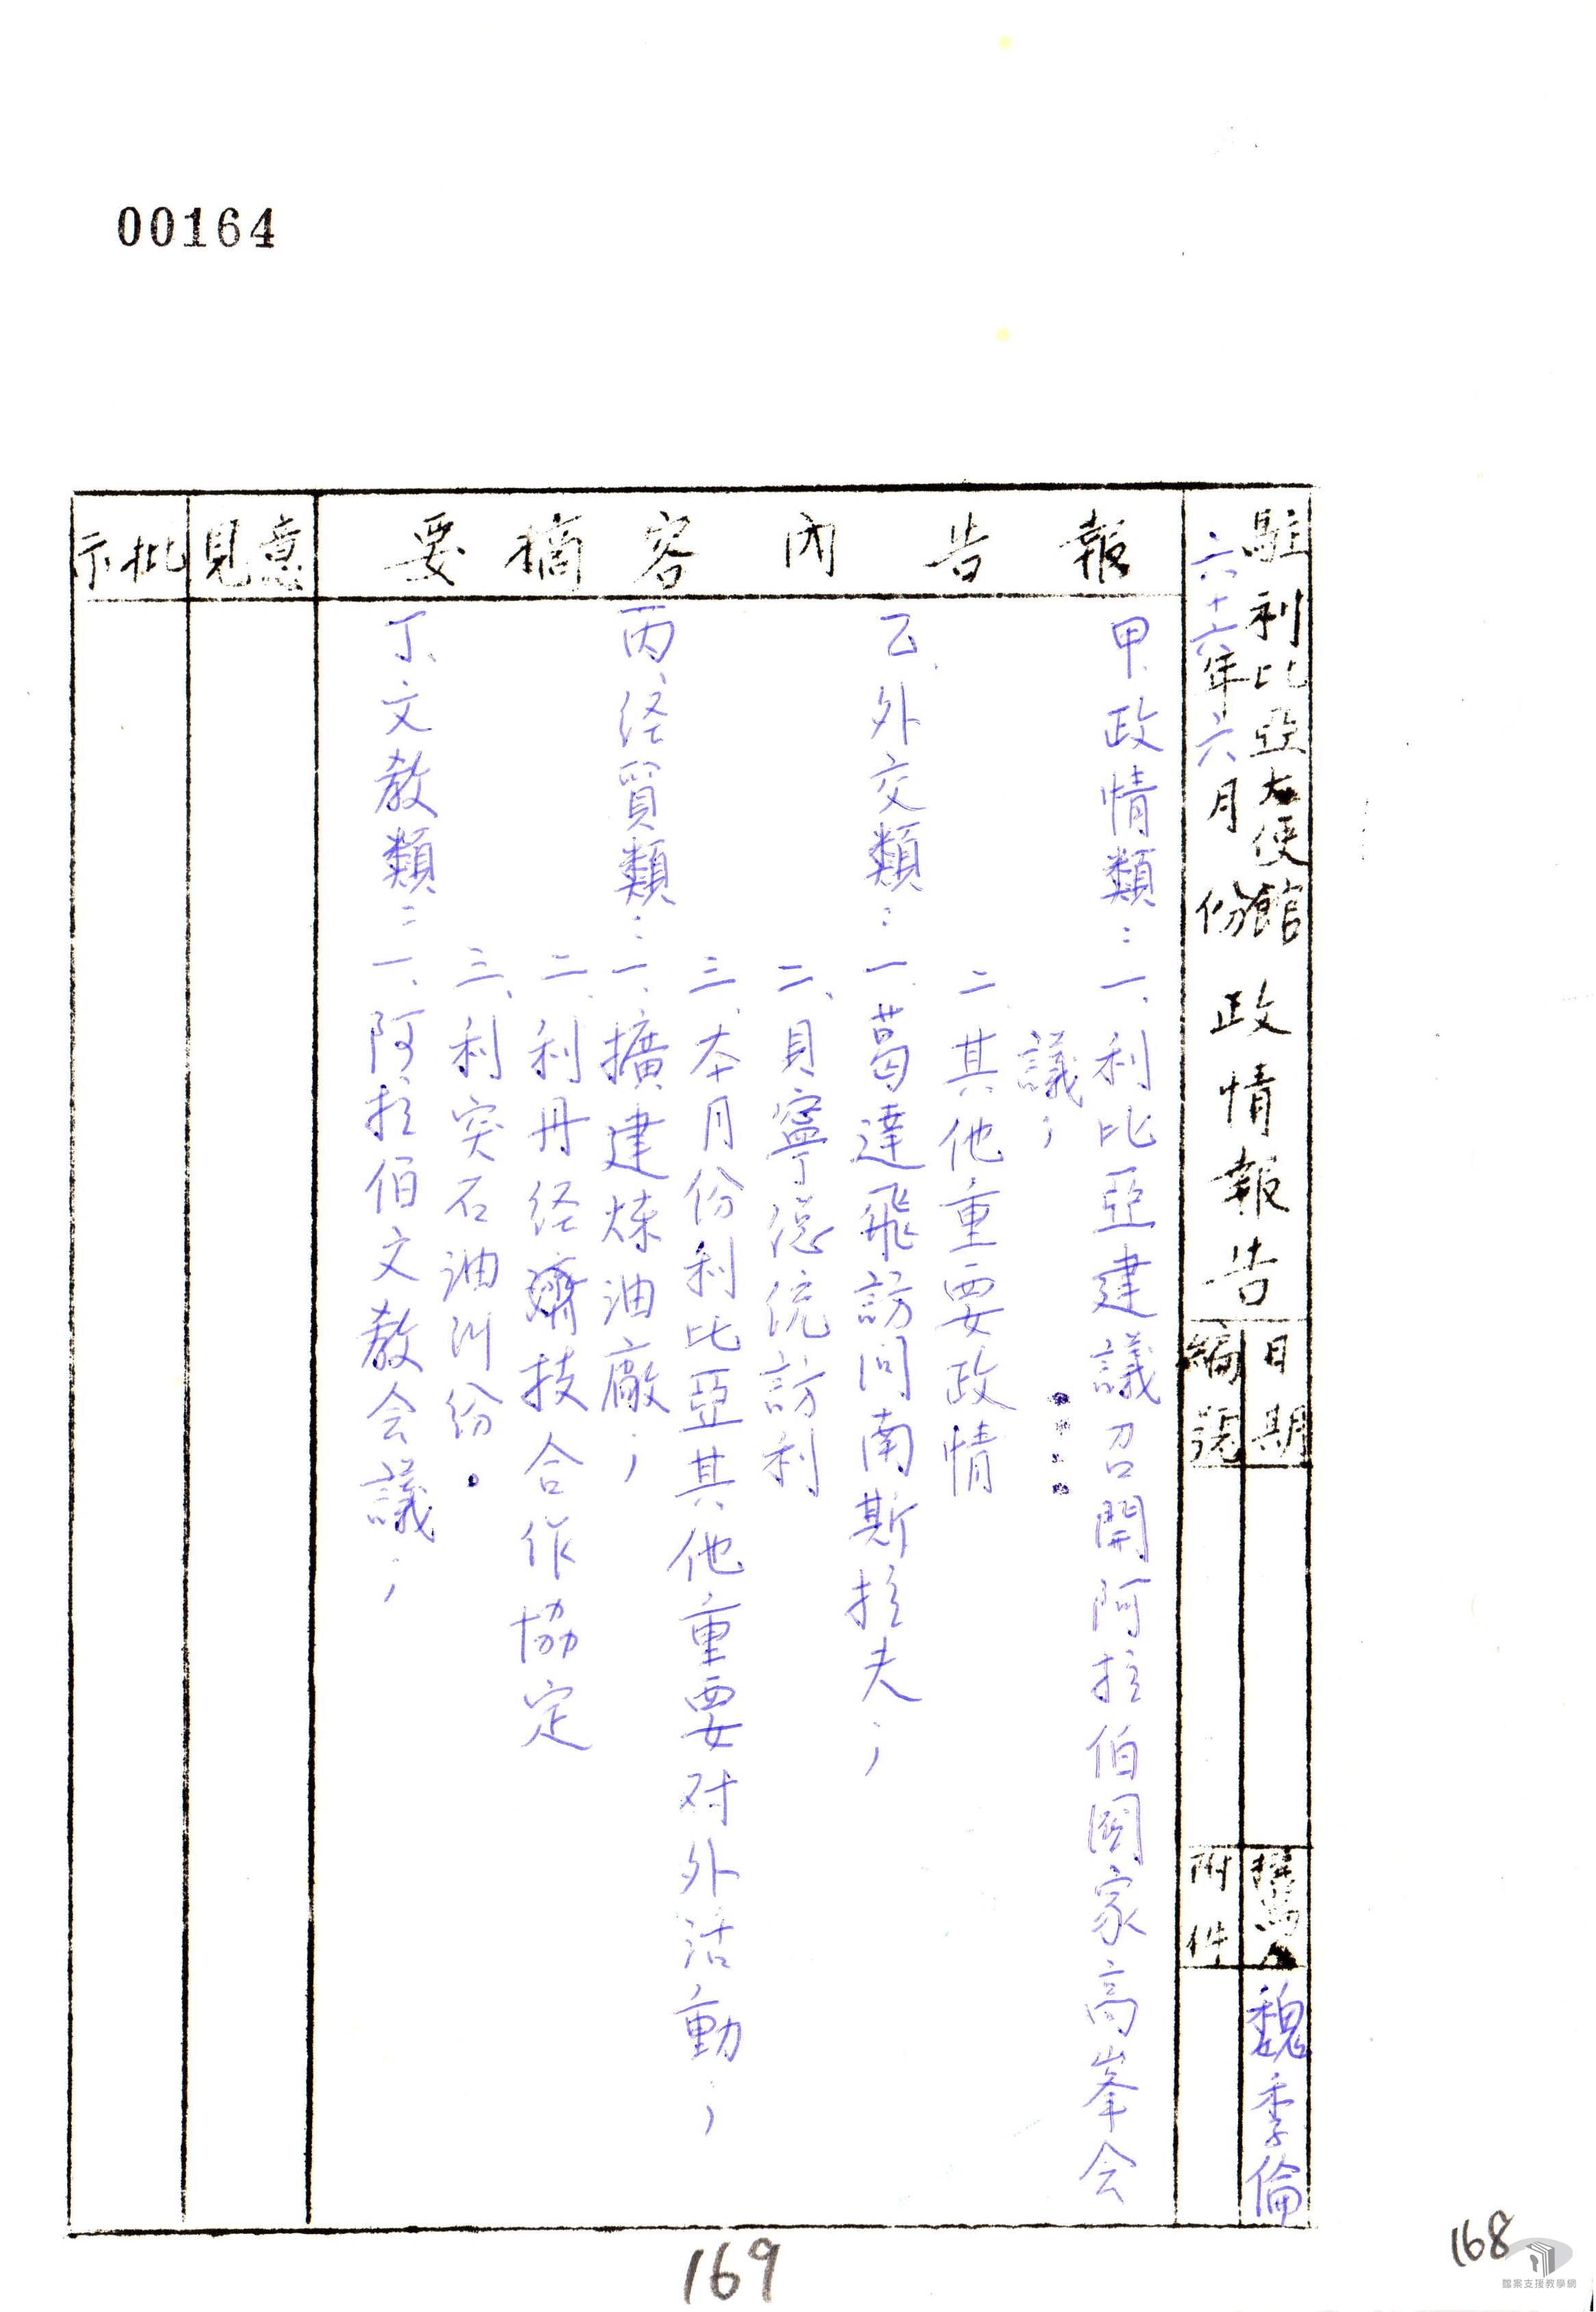 00164
駐利比亞大使館
六十六年六月份
政情報告
日期
編號
撰寫人
魏季倫
附件
報告內容摘要
意見
批示
甲、政情類：一、利比亞建議召開阿拉伯國家高峯会
議；
二、其他重要政情
乙、外交類：一、葛達飛訪问南斯拉夫；
二、貝寧總統訪利
三、本月份利比亞其他重要対外活動；
丙、経貿類：一、擴建煉油廠；
二、利丹経濟技合作協定
三、利突石油糾紛。
丁、文教類：一、阿拉伯文教会議；
169
168
檔案支援教學網